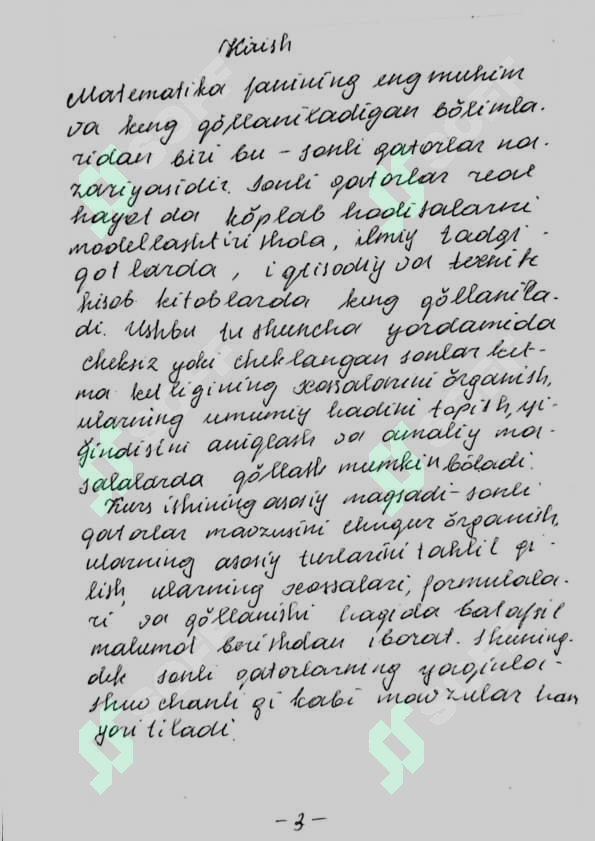 Kirish
Matematika fanining eng muhim
va keng qǒllaniladigan bǒlimla-
ridan biri bu – sonli qatorlar na-
zariyasidir. Sonli qatorlar real
hayotda kǒplab hodisalarni
modellashtirishda, ilmiy tadqi-
qotlarda, iqtisodiy va texnik
hisob kitoblarda keng qǒllanila-
di. Ushbu tushuncha yordamida
cheksiz yoki cheklangan sonlar ket-
ma ketligining xossalarini ǒrganish,
ularning umumiy hadini topish, yi-
ǧindisini aniqlash va amaliy ma-
salalarda qǒllash mumkin bǒladi.
Kurs ishining asosiy maqsadi – sonli
qatorlar mavzusini chuqur ǒrganish,
ularning asosiy turlarini tahlil qi-
lish, ularning xossalari, formulala-
ri va qǒllanishi haqida batafsil
malumot berishdan iborat. Shuning-
dek sonli qatorlarning yaqinla-
shuvchanligi kabi mavzular ham
yoritiladi.
– 3 –
SOFF